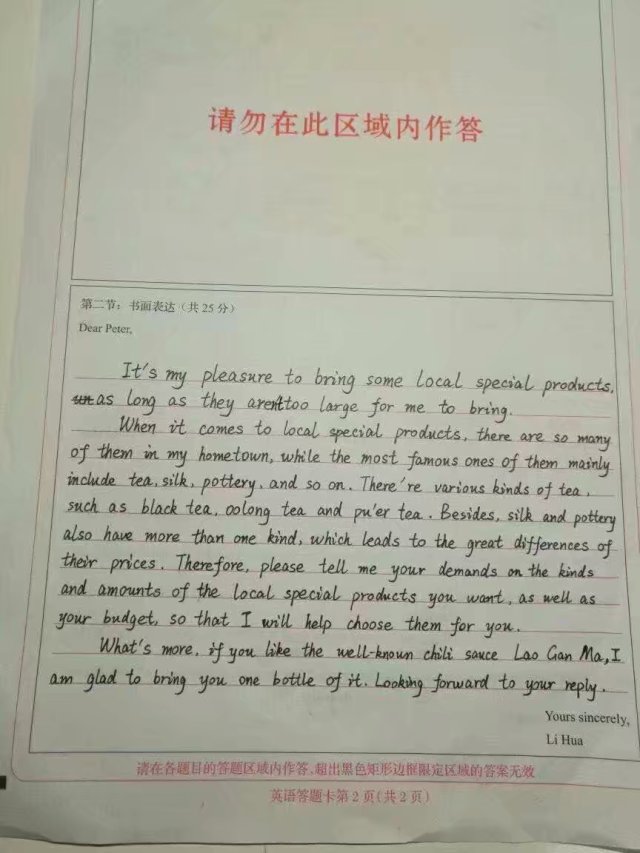 请勿在此区域内作答
第二节：书面表达（共 25 分）
Dear Peter,
It's my pleasure to bring some local special products,
as long as they aren't too large for me to bring.
When it comes to local special products, there are so many
of them in my hometown, while the most famous ones of them mainly
include tea, silk, pottery, and so on. There're various kinds of tea,
such as black tea, oolong tea and pu'er tea. Besides, silk and pottery
also have more than one kind, which leads to the great differences of
their prices. Therefore, please tell me your demands on the kinds
and amounts of the local special products you want, as well as
your budget, so that I will help choose them for you.
What's more, if you like the well-known chili sauce Lao Gan Ma, I
am glad to bring you one bottle of it. Looking forward to your reply.
Yours sincerely,
Li Hua
请在各题目的答题区域内作答，超出黑色矩形边框限定区域的答案无效
英语答题卡第 2 页（共 2 页）